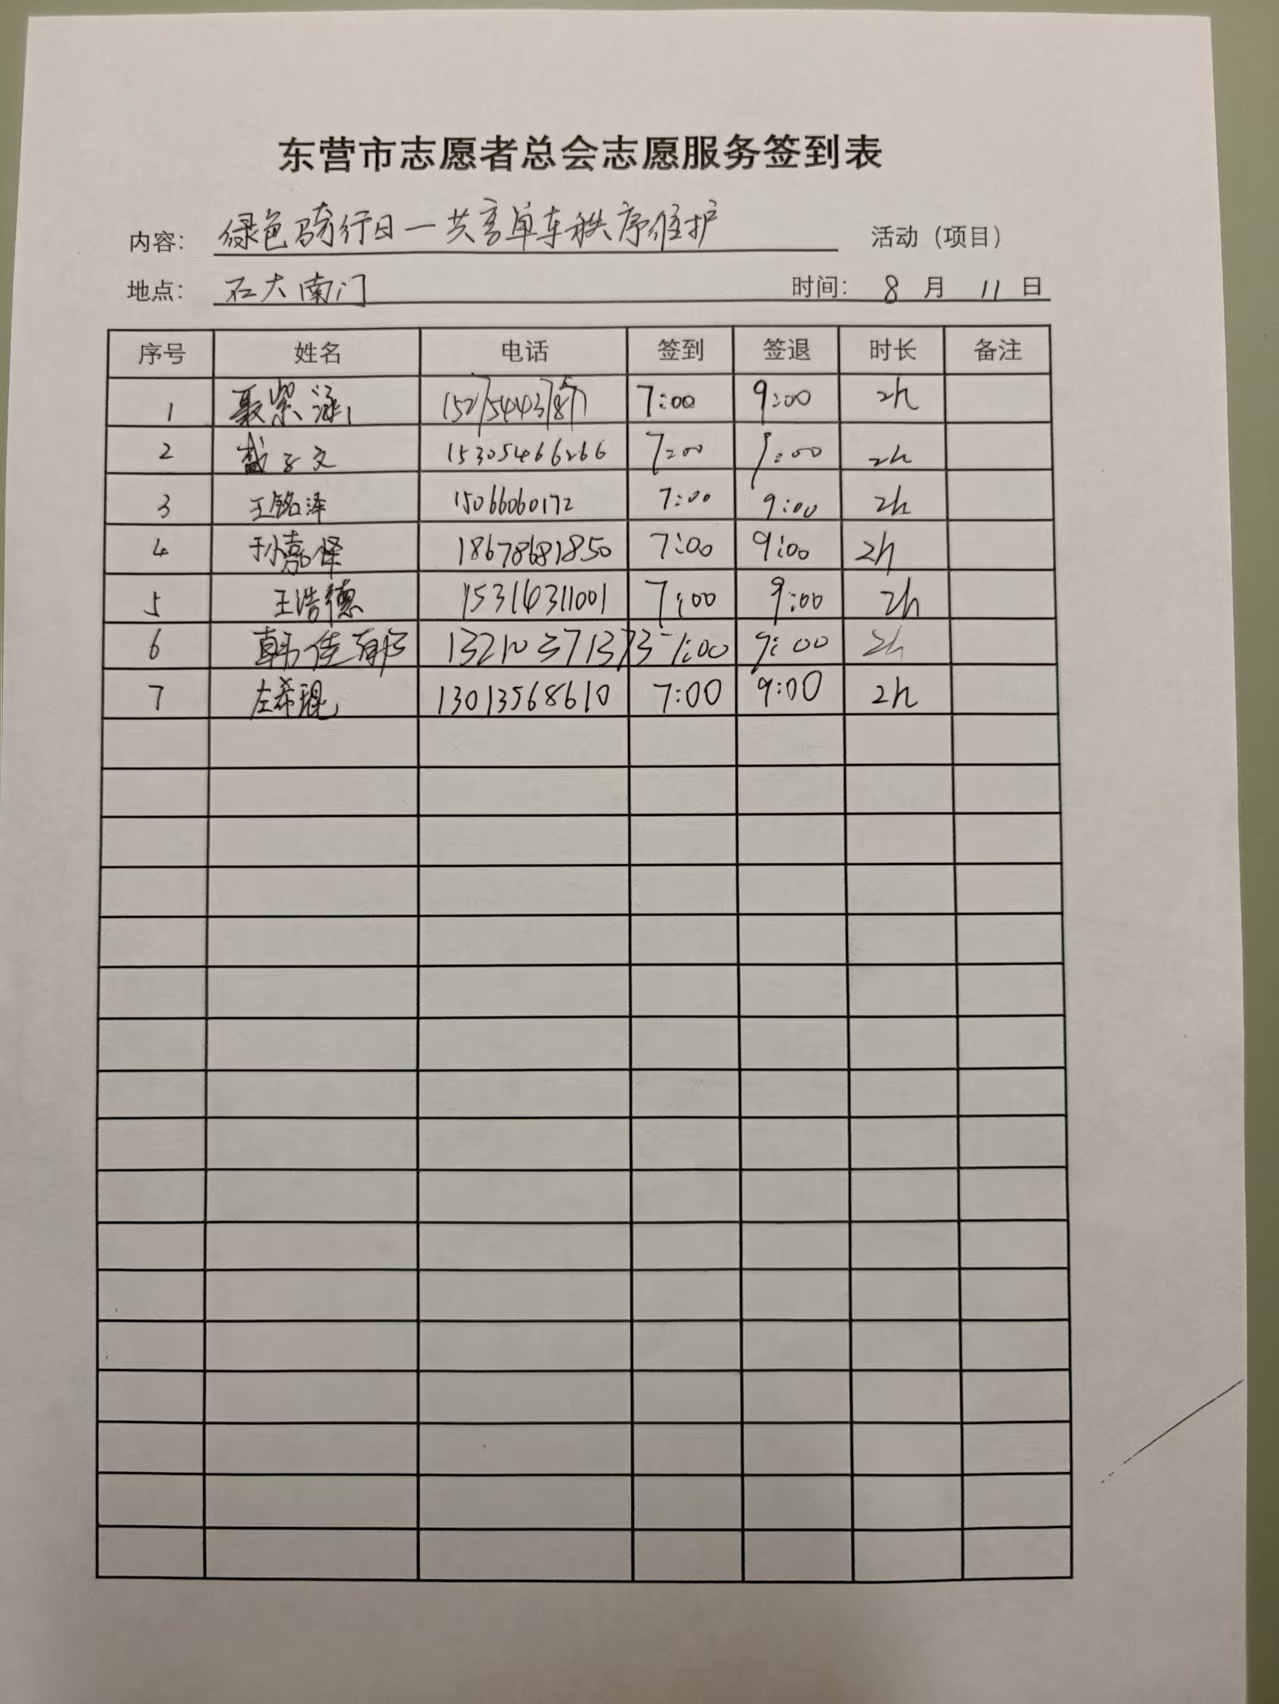 东营市志愿者总会志愿服务签到表
内容: 绿色骑行日一共享单车秩序维护 活动（项目）
地点: 石大南门 时间: 8 月 11 日
序号 姓名 电话 签到 签退 时长 备注
1 聂紫泳 7:00 9:00 2h
2 戴子文 15305466266 7:00 9:00 2h
3 王铭泽 15066060172 7:00 9:00 2h
4 孙嘉怿 18678681850 7:00 9:00 2h
5 王浩德 15314311001 7:00 9:00 2h
6 韩佳 13210371373 7:00 9:00 2h
7 左希琨 13013568610 7:00 9:00 2h